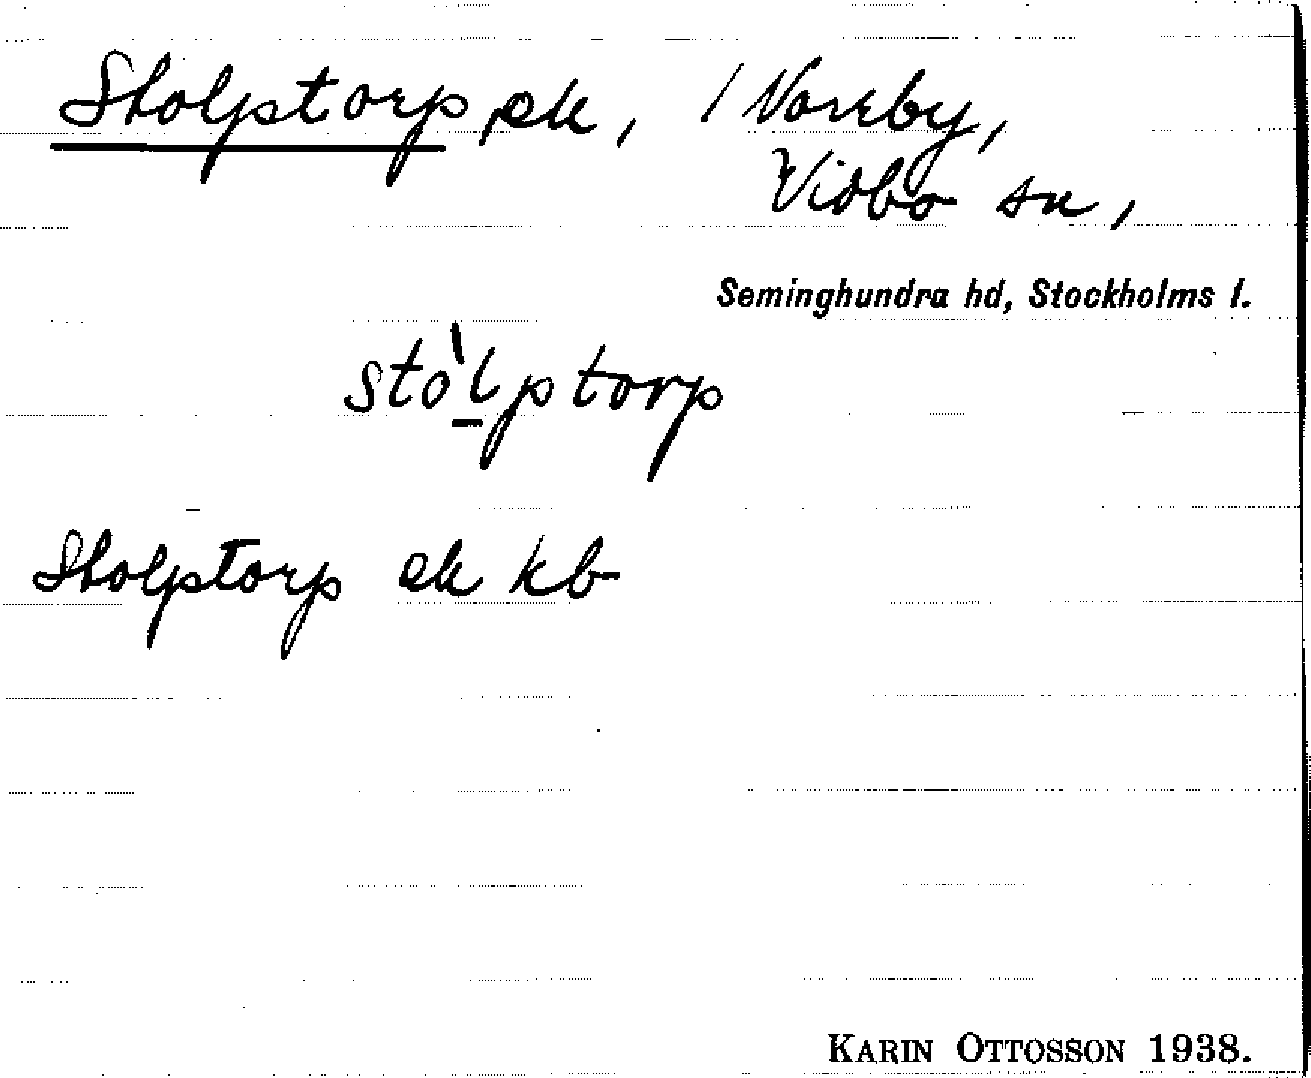 Stolptorp, ek, / Noreby,
Vidbo sn,
Seminghundra hd, Stockholms l.
stò̲lptorp
Stolptorp ek kb
KARIN OTTOSSON 1938.